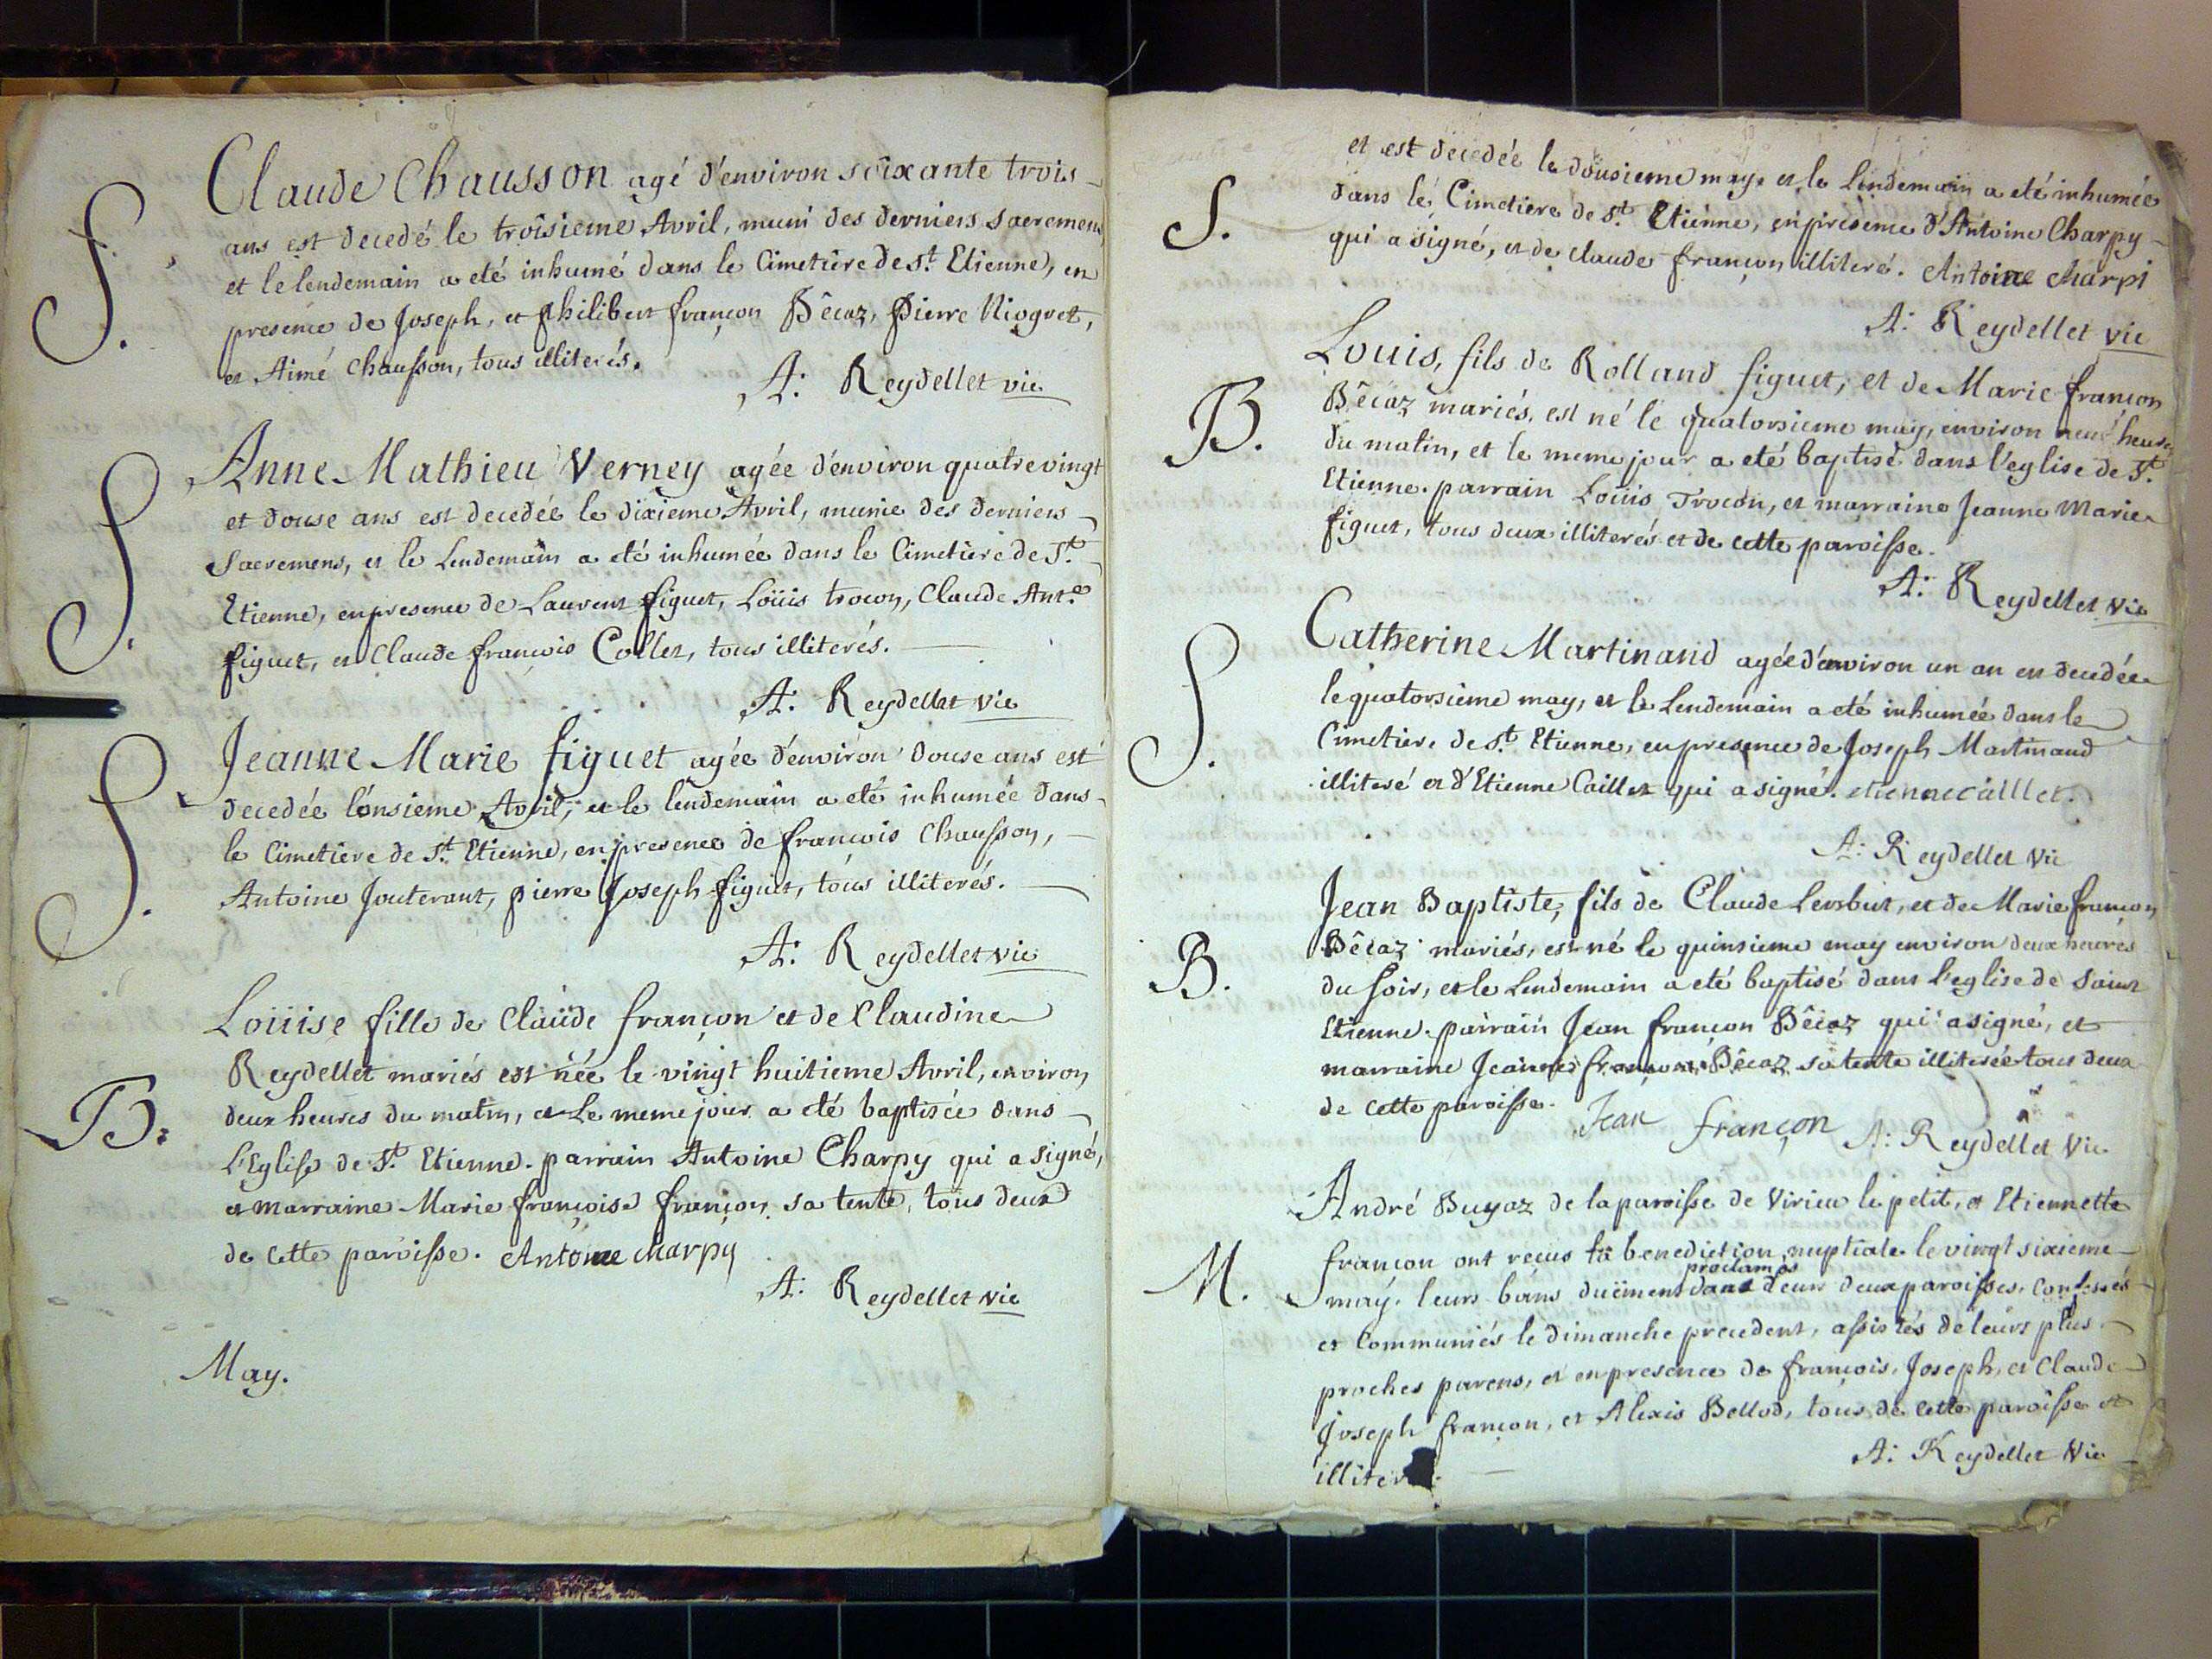 S.
Claude Chausson agé d'environ soixante trois
ans est decedé le troisieme Avril, muni des derniers sacremens
et le lendemain a eté inhumé dans le Cimetiere de St. Etienne, en
presence de Joseph, et philibert françon Bêcaz, Pierre Niogret,
et Aimé Chausson, tous illiterés.
A: Reydellet vic
S.
Anne Mathieu Verney agée d'environ quatrevingt
et douse ans est decedée le dixieme Avril, munie des derniers
Sacremens, et le Lendemain a eté inhumée dans le Cimetiere de St.
Etienne, en presence de Laurent figuet, Loüis trocon, Claude Ant.e
figuet, et Claude françois Collet, tous illiterés.
A: Reydellet vic
S.
Jeanne Marie figuet agée d'environ douse ans est
decedée l'onsieme Avril, et le lendemain a eté inhumée dans
le Cimetiere de St. Etienne, en presence de françois Chausson,
Antoine Jouterant, pierre Joseph figuet, tous illiterés.
A: Reydellet vic
B.
Loüise fille de Claude françon et de Claudine
Reydellet mariés est née le vingt huitieme Avril, environ
deux heures du matin, et Le meme jour a eté baptisée dans
L'Eglise de St. Etienne. parrain Antoine Charpy qui a signé,
et marraine Marie françoise françon sa tente, tous deux
de cette paroisse. Antoine charpy
A: Reydellet vic
May.
et est decedée le dousieme may, et le Lendemain a eté inhumée
S.
dans le Cimetiere de St. Etienne, en presence d'Antoine Charpy
qui a signé, et de claude françon illiteré. Antoine charpi
A: Reydellet vic
Louis, fils de Rolland figuet, et de Marie françon
B.
Bêcaz mariés, est né le quatorsieme may, environ neuf heures
du matin, et le meme jour a eté baptisé dans l'eglise de St.
Etienne. parrain Loüis Trocon, et marraine Jeanne Marie
figuet, tous deux illiterés et de cette paroisse.
A: Reydellet vic
S.
Catherine Martinand agée d'environ un an est decedée
le quatorsieme may, et le Lendemain a eté inhumée dans le
Cimetiere de St. Etienne, en presence de Joseph Martinand
illiteré et d'Etienne Caillet qui a signé. etienne caillet.
A: Reydellet vic
Jean Baptiste, fils de Claude Levrbut, et de Marie françon
B.
Bêcaz mariés, est né le quinsieme may environ deux heures
du soir, et le Lendemain a eté baptisé dans l'eglise de saint
Etienne. parrain Jean françon Bêcaz qui a signé, et
marraine Jeanne françon Bêcaz sa tente illiterée tous deux
de cette paroisse.
Jean françon A: Reydellet vic
André Buyaz de la paroisse de Virieu le petit, et Etiennette
M.
françon ont reçus la benediction nuptiale le vingt sixieme
may. leurs bans duëment proclamés dans leurs deux paroisses. confessés
et Communiés le dimanche precedent, assistés de leurs plus
proches parens, et en presence de françois, Joseph, et Claude
Joseph françon, et Alexis Bellod, tous de cette paroisse et
A: Reydellet vic